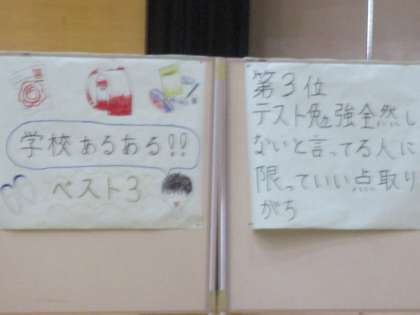 学校あるある!!
ベスト3
第3位
テスト勉強全然し
ないと言ってる人に
限っていい点取り
がち